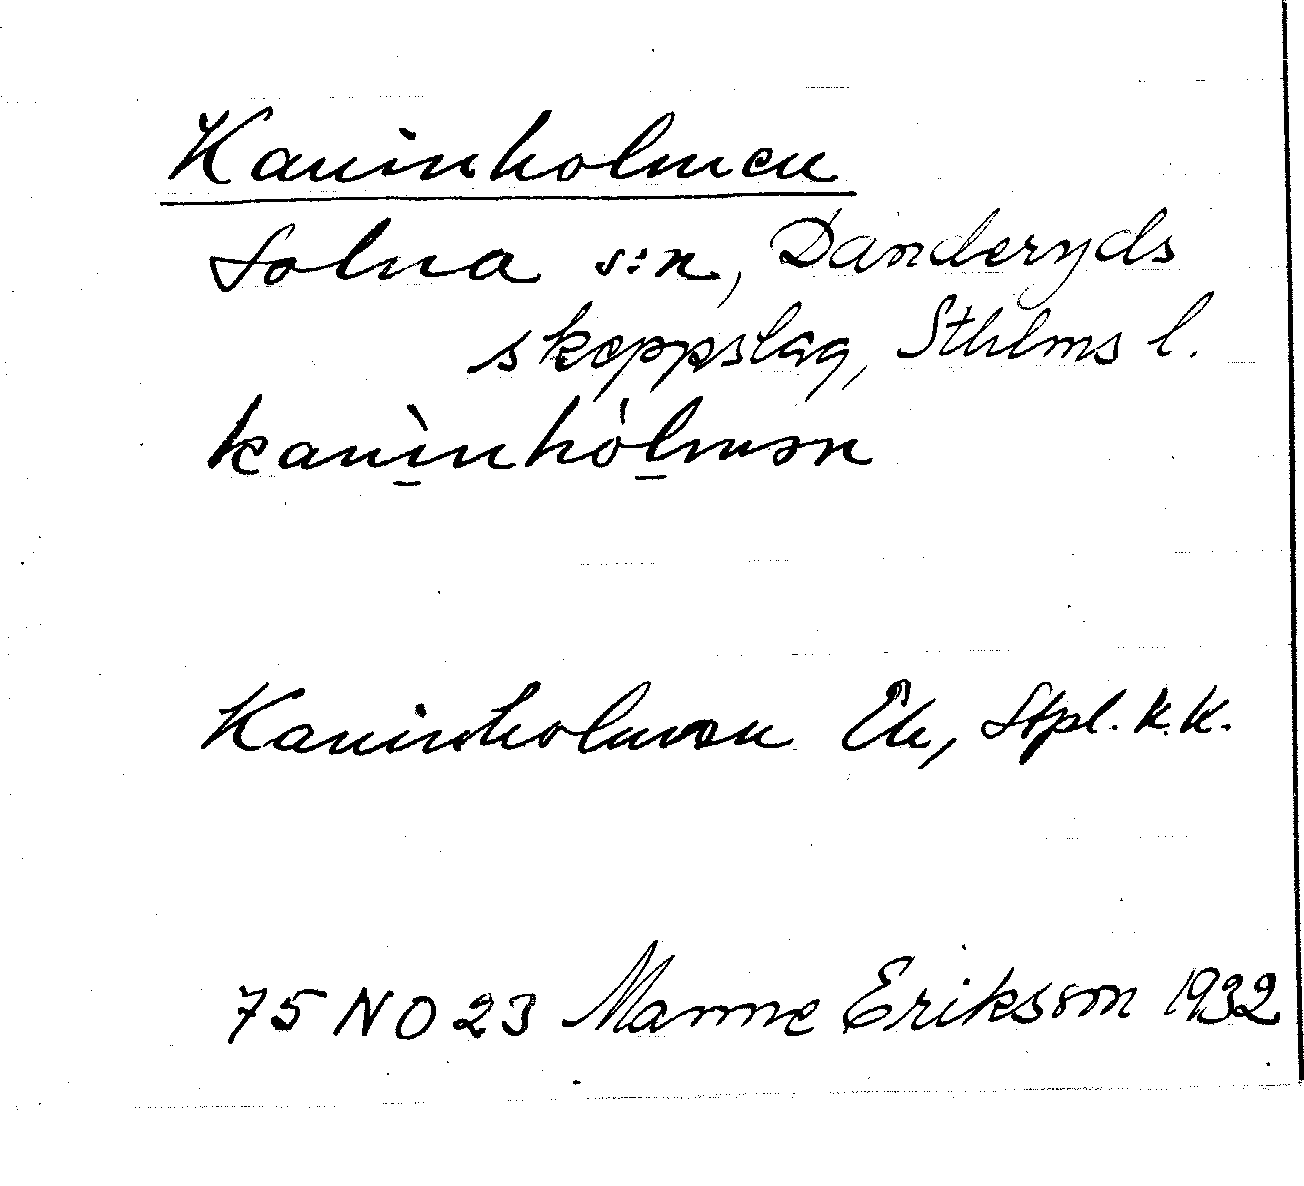 Kaninholmen
Solna s:n, Danderyds
skeppslag, Sthlms l.
kanì̱nhó̱lmən
Kaninholmen Ek, Stpl. k.k.
75 NO 23 Manne Eriksson 1932